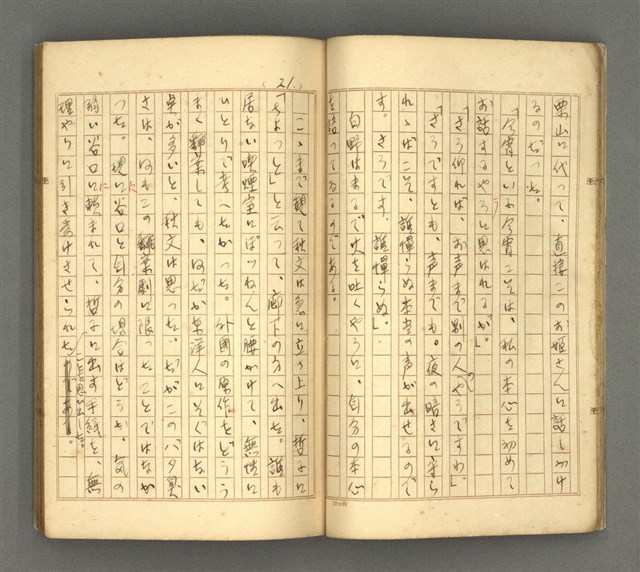 栗山に代って、直接このお姫さんに話しかけ
るのだった。
「今宵といふ今宵こそは、私の本心を初めて
お話するやうに思はれるが」。
「さう仰れば、お声まで別の人のやうですわ」。
「さうですとも、声までも。夜の暗さに守ら
れゝばこそ、誰憚らぬ本当の声が出せるので
す。さうです、誰憚らぬ」。
白野はまるで火を吐くやうに、自分の本心
を語ってゐるのである。
21
こゝまで観て秋文は急に立ち上り、哲子に
「ちょっと」と云って、廊下の方へ出た。誰も
居ない喫煙室にぽつねんと腰かけて、無性に
ひとりで考へたかった。外国の原作をどうう
まく翻案しても、何だか東洋人にそぐはない
点が多いと、秋文は思った。だがこのバタ臭
さは、何もこの翻案劇に限ったことではなか
った。現に谷口と自分の場合はどうか。気の
弱い谷口に頼まれて、哲子に出す手紙を、無
理やりに引き受けさせられた
ことを思い出した。